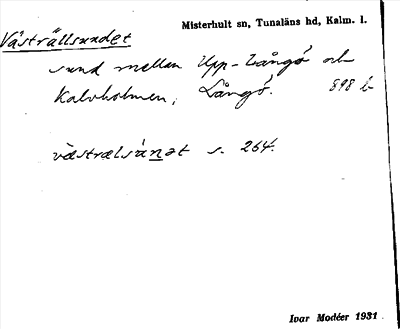 Misterhult sn, Tunaläns hd, Kalm. l.
Västrällsundet
sund mellan Upp-Långö och
Kalvholmen, Långö. 898 b
västrælsúnət s. 264.
Ivar Modéer 1931.